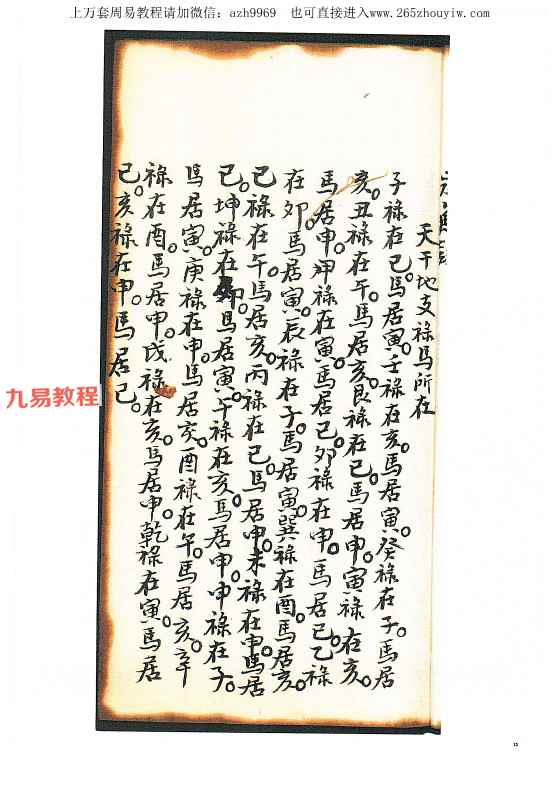 上万套周易教程请加微信：azh9969　也可直接进入www.265zhouyiw.com
天干地支禄馬所在
子禄在已。馬居寅。壬禄在亥。馬居寅。癸禄在子。馬居
亥。丑禄在午。馬居亥。艮禄在已。馬居申。寅禄在亥。
馬居申。甲禄在寅。馬居已。夘禄在申。馬居已。乙禄
在夘。馬居寅。辰禄在子。馬居寅。巽禄在酉。馬居亥。
已禄在午。馬居亥。丙禄在已。馬居申。未禄在申。馬居
已。坤禄在卯。馬居寅。午禄在亥。馬居申。申禄在子。
馬居寅。庚禄在申。馬居亥。酉禄在午。馬居亥。辛
禄在酉。馬居申。戌禄在亥。馬居申。乾禄在寅。馬居
已。亥禄在申。馬居已。
九易教程
13